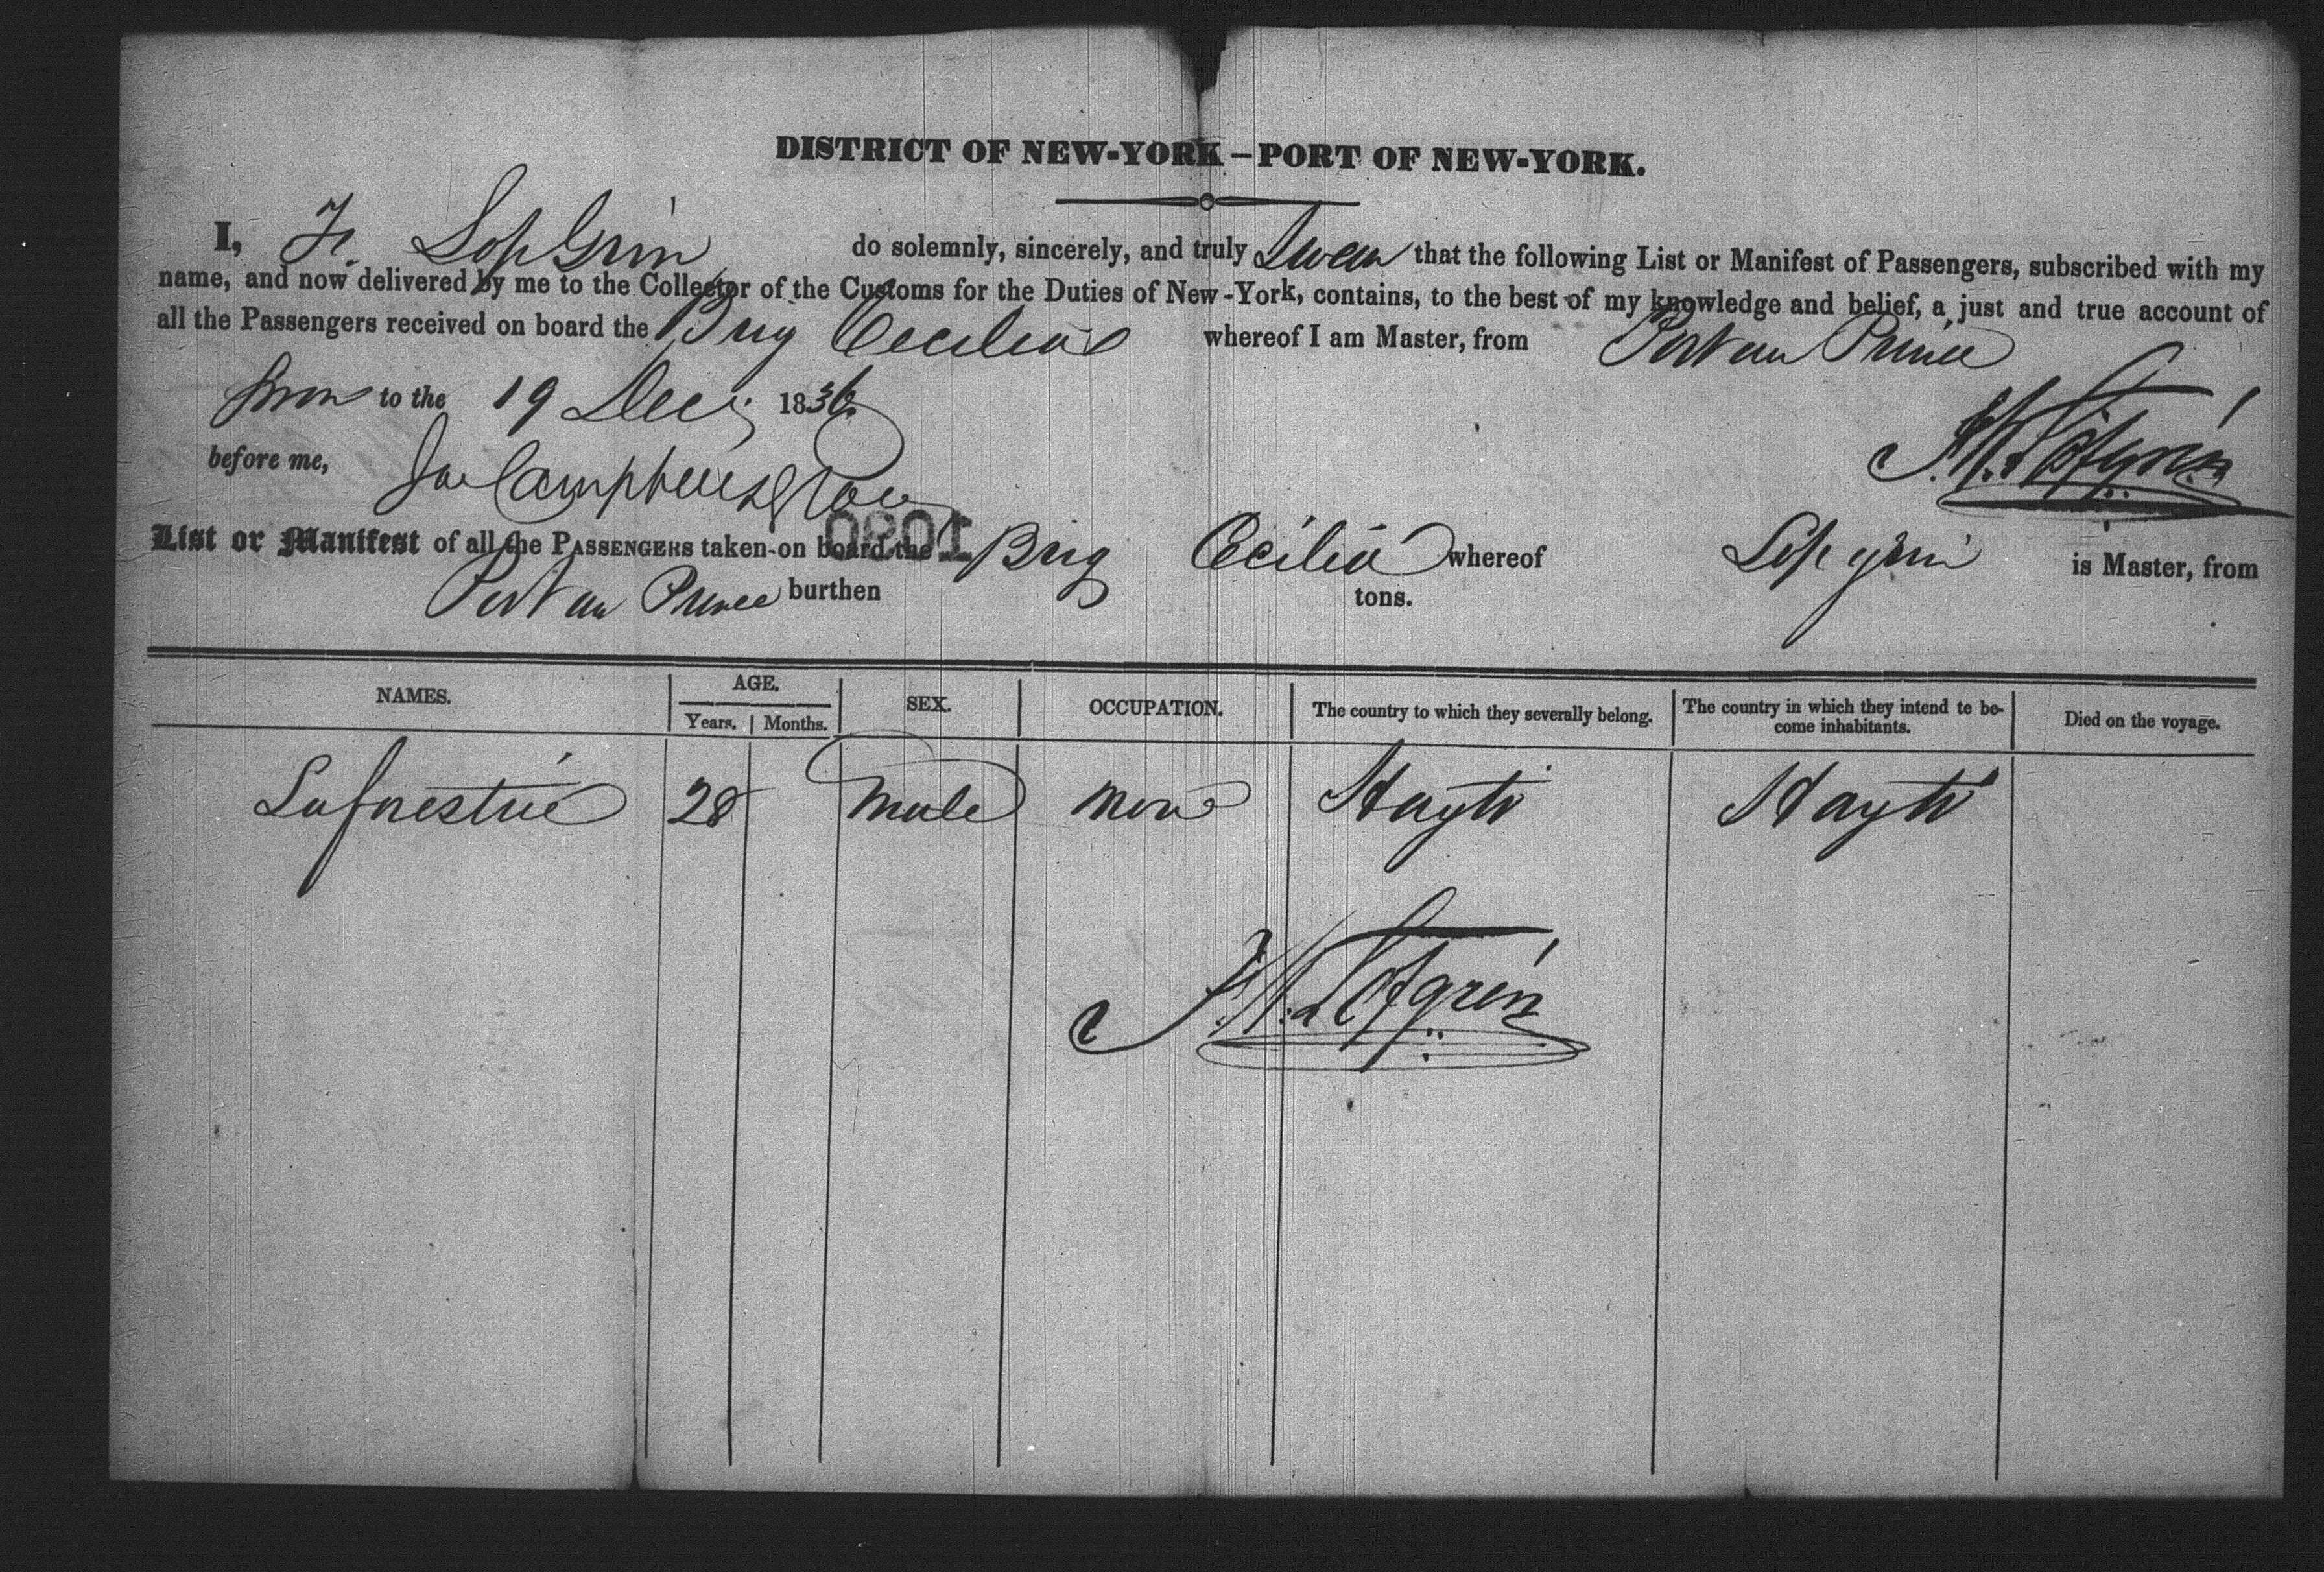 DISTRICT OF NEW-YORK – PORT OF NEW-YORK.
I, F. Lofgrin do solemnly, sincerely, and truly Swear that the following List or Manifest of Passengers, subscribed with my
name, and now delivered by me to the Collector of the Customs for the Duties of New-York, contains, to the best of my knowledge and belief, a just and true account of
all the Passengers received on board the Brig Cecilia whereof I am Master, from Port au Prince
Sworn to the 19 Dec 1836
before me,
List or Manifest of all the PASSENGERS taken on board the Brig Cecilia whereof Lofgrin is Master, from
Port au Prince burthen tons.
NAMES. AGE. Years. Months. SEX. OCCUPATION. The country to which they severally belong. The country in which they intend to become inhabitants. Died on the voyage.
28 male none Hayti Hayti
Löfgrén